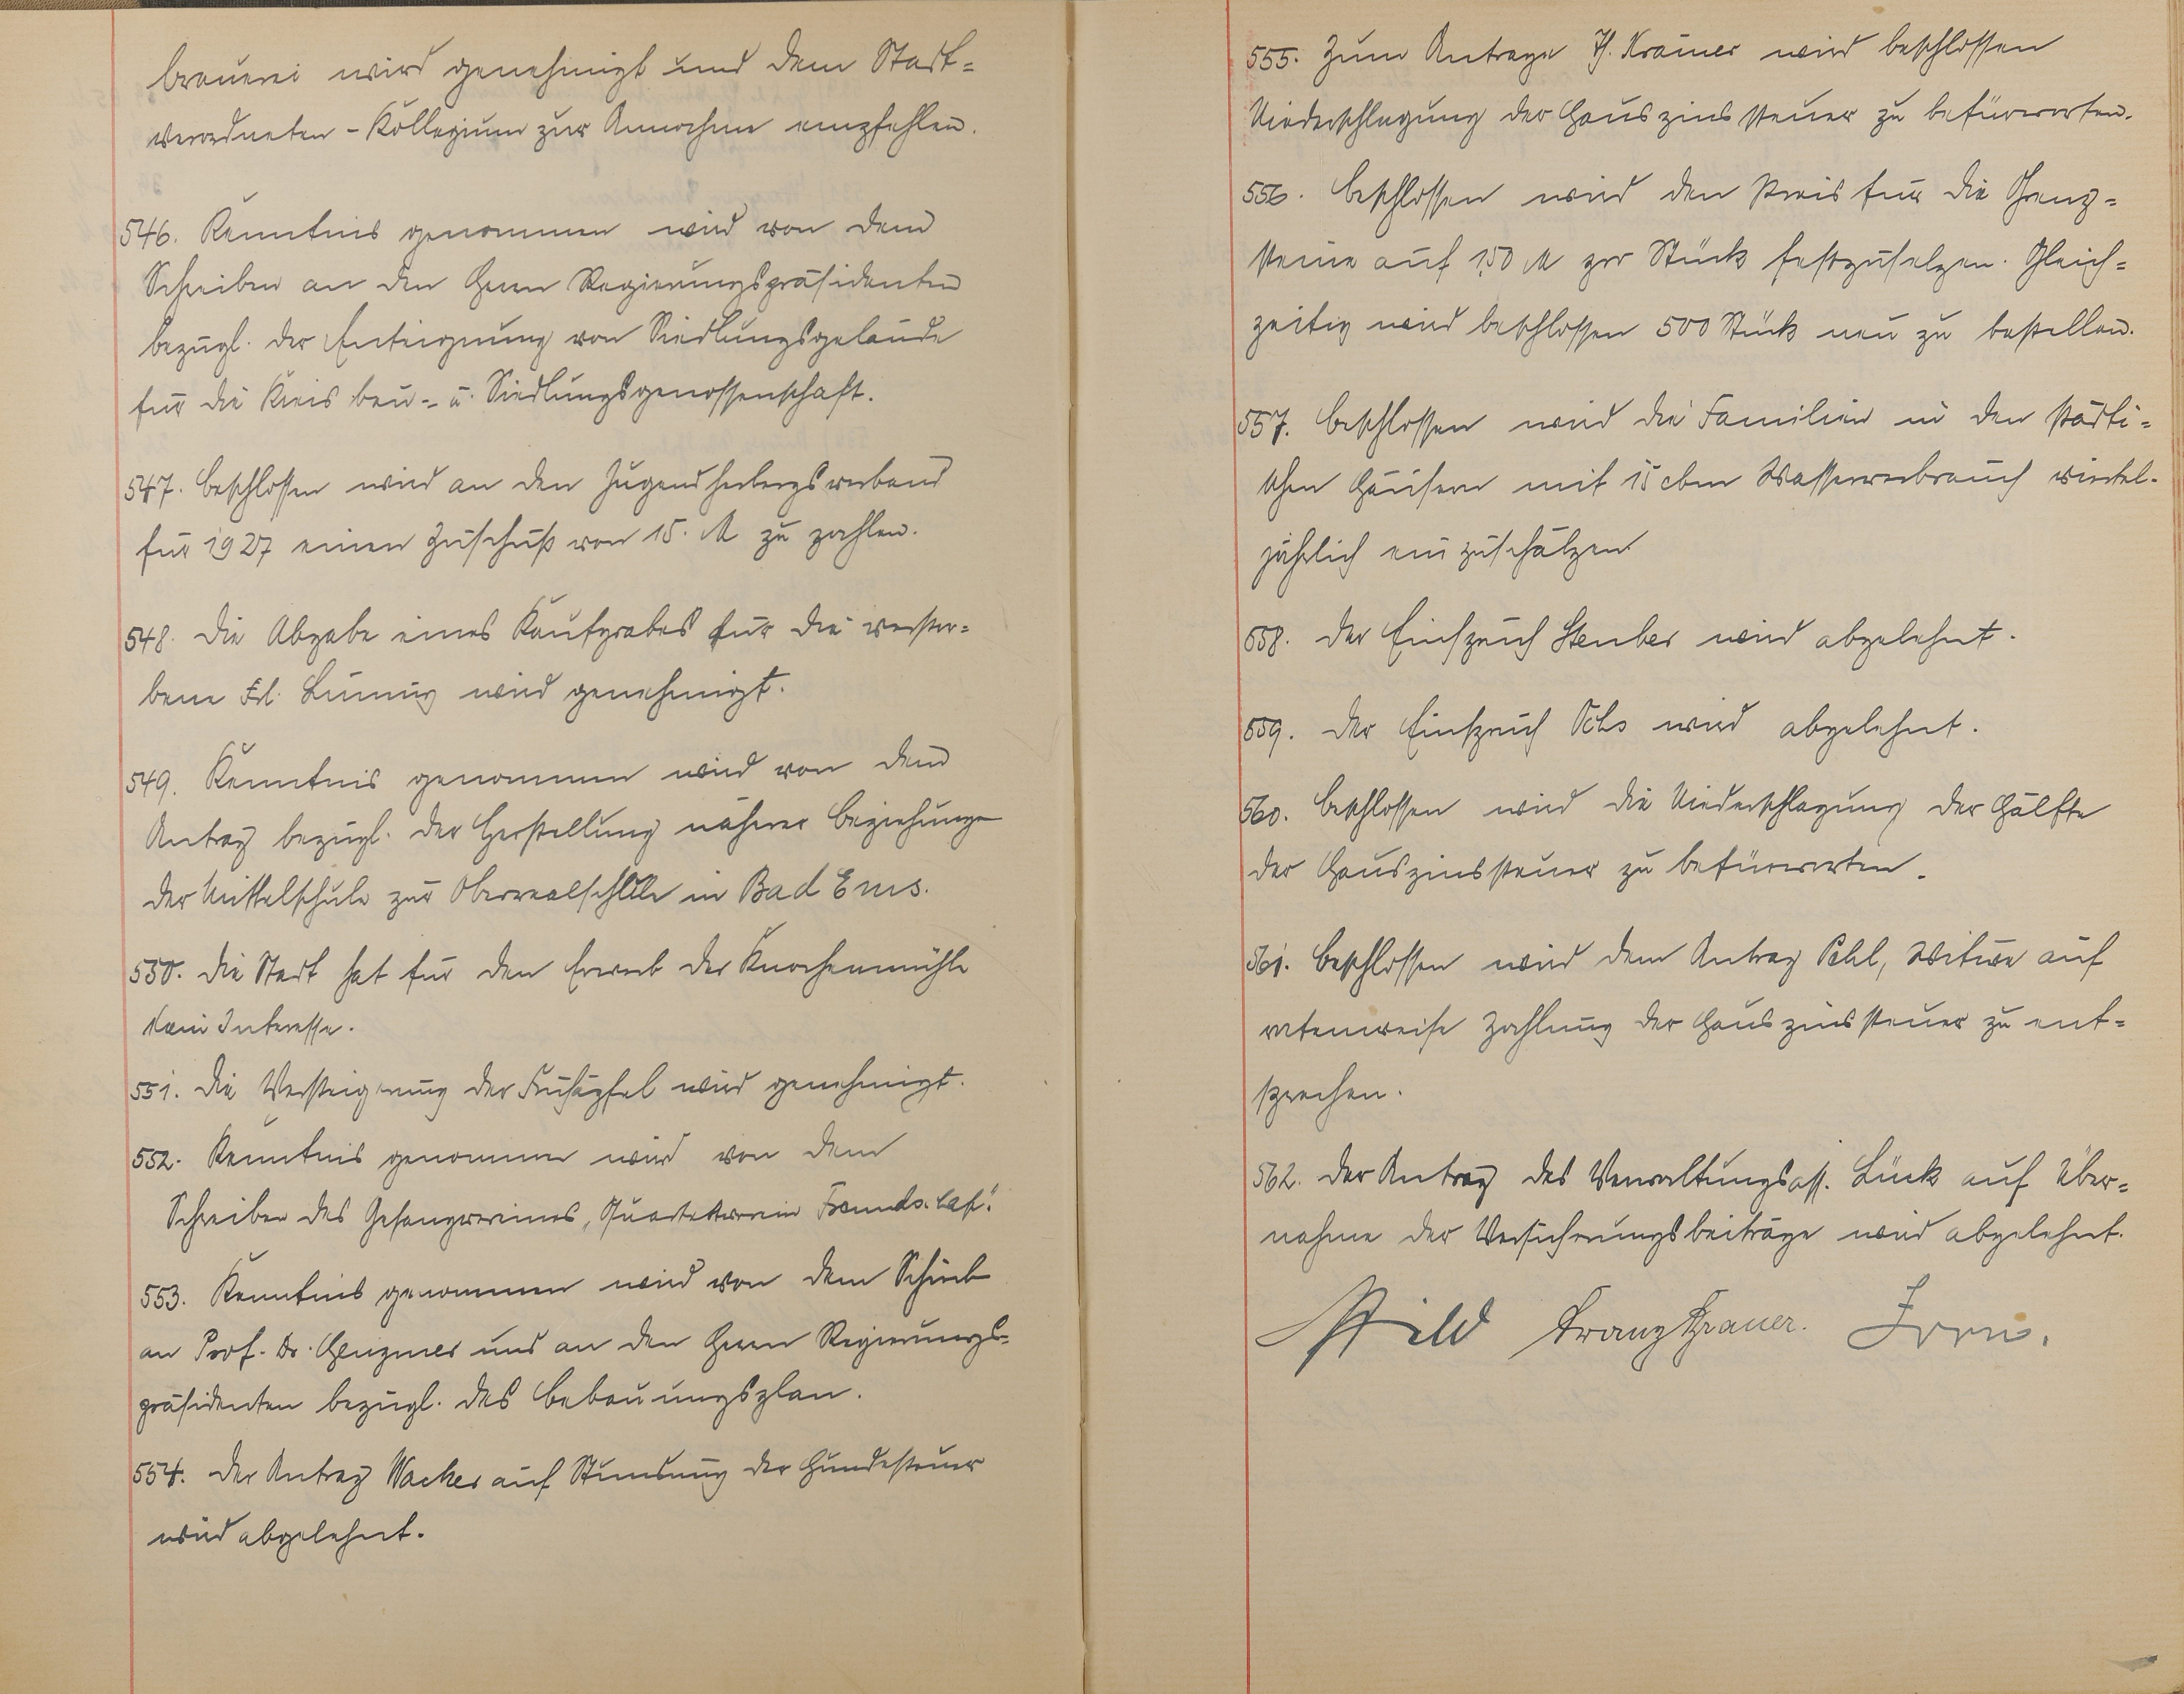 brauerei wird genehmigt und dem Stadt=
verordneten-Kollegium zur Annahme empfehlen.
546. Kenntnis genommen wird von dem
Schreiben an den Herrn Regierungspräsidenten
bezügl. der Enteignung von Siedlungsgelände
für die Kreis bau- u. Siedlungsgenossenschaft.
547. beschlossen wird an den Jugendherbergsverband
für 1927 einen Zuschuß von 15. M zu zahlen.
548. die Abgabe eines Kaufgrabes für die verstor=
bene Frl. wird genehmigt.
549. Kenntnis genommen wird von dem
Antrag bezügl. der Herstellung näherer Beziehungen
der Mittelschule zur Oberrealschule in Bad Ems.
550. die Stadt hat für den Erwerb der Knochenmühle
kein Interesse.
551. die Versteigerung der Frühäpfel wird genehmigt.
552. Kenntnis genommen wird von dem
Schreiben des Gesangvereines „Quartettverein
553. Kenntnis genommen wird von dem Schreib
an Prof. Dr. Genzmer und an den Herrn Regierungs=
präsidenten bezügl. des Bebauungsplan.
554. der Antrag Wacker auf Stundung der Hundesteuer
wird abgelehnt.
555. Zum Antrage Th. Kramer wird beschlossen
Niederschlagung der Hauszinssteuer zu befürworten.
556. beschlossen wird den Preis für die Grenz=
steine auf 1,50 M pro Stück festzusetzen. Gleich=
zeitig wird beschlossen 500 Stück neu zu bestellen.
557. beschlossen wird die Familien in den städti=
schen Häusern mit 15 cbm Wasserverbrauch viertel-
jährlich einzuschätzen
558. der Einspruch Steuber wird abgelehnt.
559. der Einspruch Ochs wird abgelehnt.
560. beschlossen wird die Niederschlagung der Hälfte
der Hauszinssteuer zu befürworten.
561. beschlossen wird dem Antrag Pohl, Witwe auf
ratenweise Zahlung der Hauszinssteuer zu ent=
sprechen.
562. der Antrag des Verwaltungsass. Lück auf Über=
nahme der Versicherungsbeiträge wird abgelehnt.
Franz